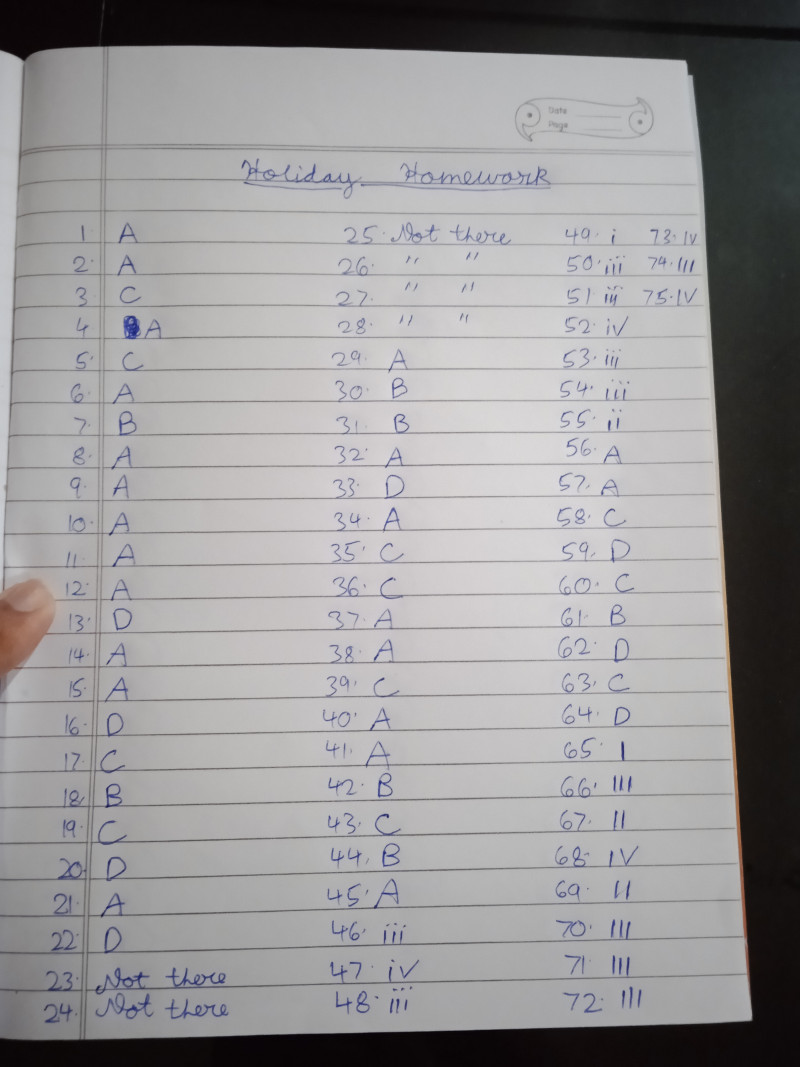 Date
Page
Holiday Homework
1. A
2. A
3 C
4 A
5. C
6. A
7. B
8. A
9. A
10. A
11. A
12. A
13. D
14. A
15. A
16. D
17. C
18. B
19. C
20. D
21. A
22. D
23. Not there
24. Not there
25. Not there
26. " "
27. " "
28. " "
29. A
30. B
31. B
32. A
33. D
34. A
35. C
36. C
37. A
38. A
39. C
40. A
41. A
42. B
43. C
44. B
45. A
46. iii
47. iv
48. iii
49. i
50. iii
51. iii
52. iv
53. iii
54. iii
55. ii
56. A
57. A
58. C
59. D
60. C
61. B
62. D
63. C
64. D
65. I
66. III
67. II
68. IV
69. II
70. III
71. III
72. III
73. IV
74. III
75. IV